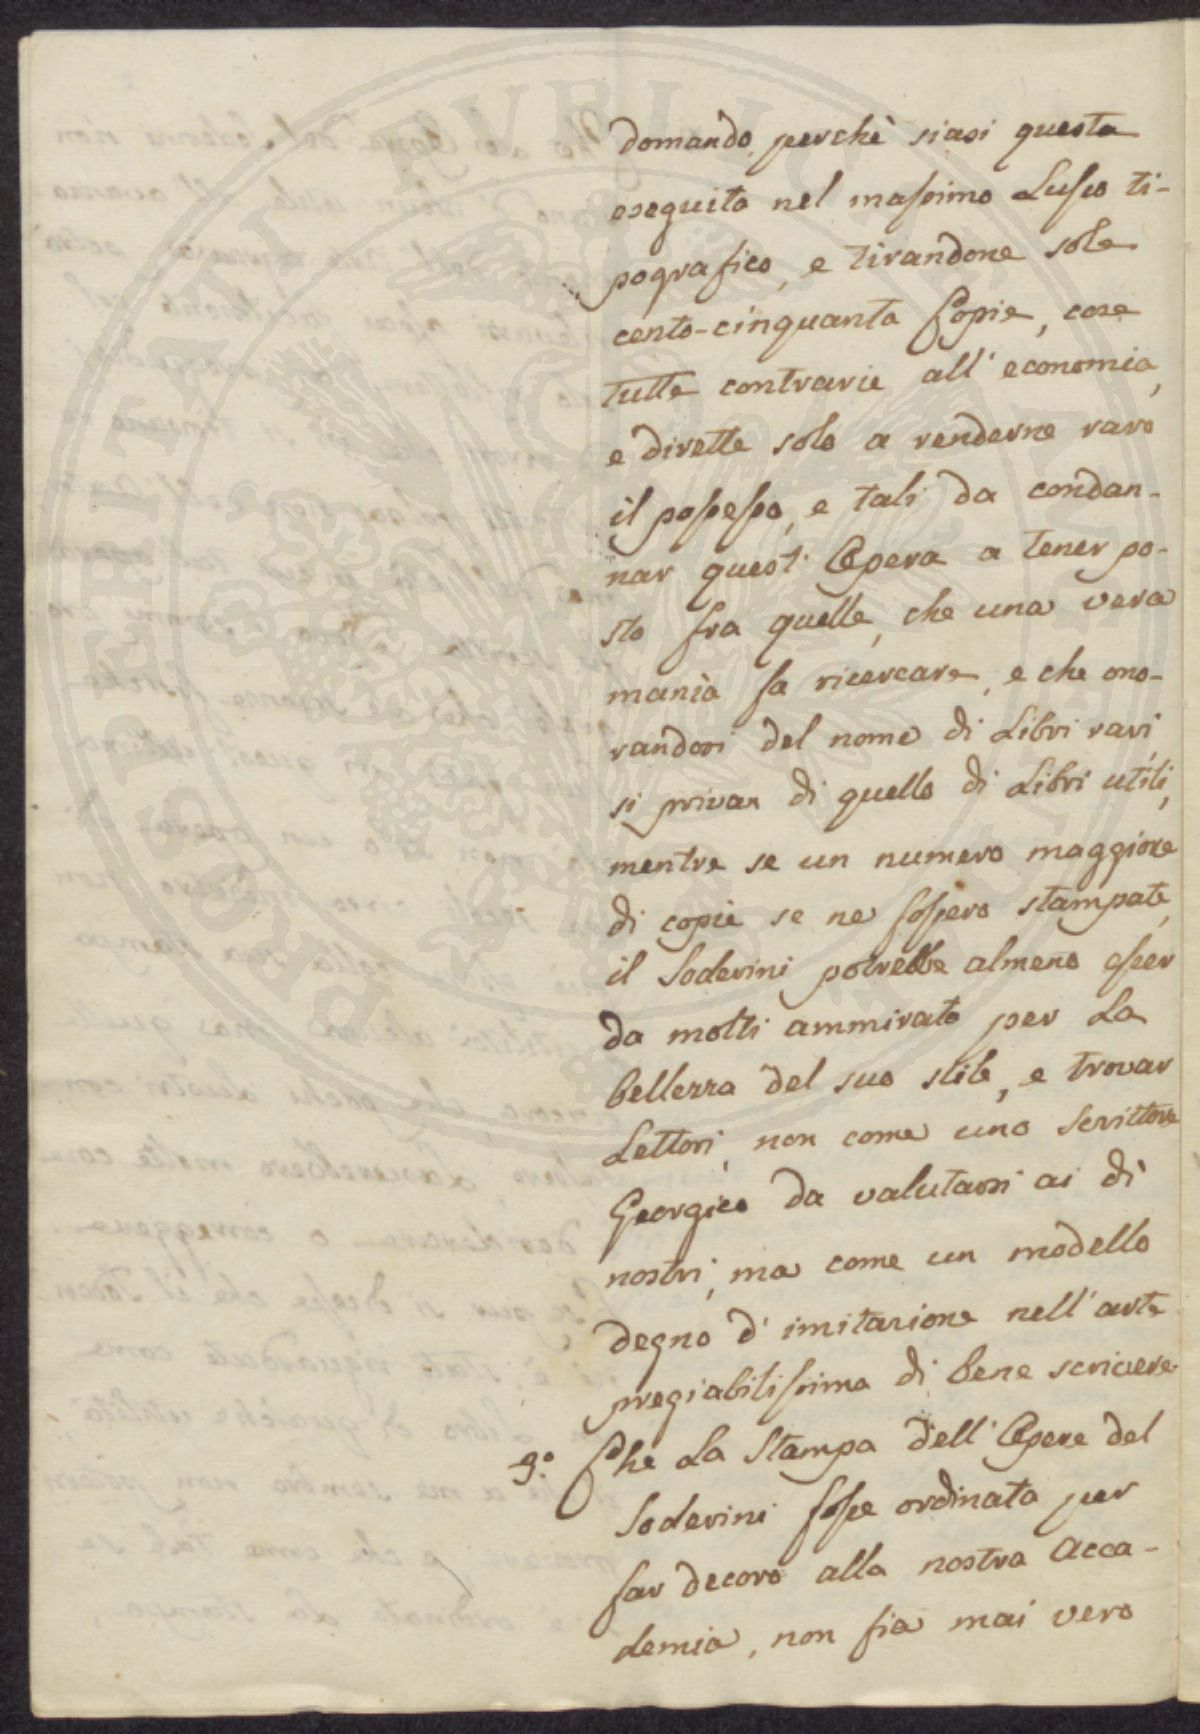 domando, perchè siasi questa
eseguita nel massimo Lusso ti-
pografico, e tirandone sole
cento-cinquanta Copie, cose
tutte contrarie all' economia,
e dirette solo a renderne raro
il possesso, e tali da condan-
nar quest' Opera a tener po-
sto fra quelle, che una vera
manìa fa ricercare, e che ono-
randosi del nome di Libri rari,
si privan di quello di Libri utili,
mentre se un numero maggiore
di copie se ne fossero stampate,
il Soderini potrebbe almeno esser
da molti ammirato per La
bellezza del suo stile, e trovar
Lettori, non come uno Scrittore
Georgico da valutarsi ai dì
nostri, ma come un modello
degno d' imitazione nell' arte
pregiabilissima di bene scrivere.
3.º Che La Stampa dell' Opere del
Soderini fosse ordinata per
far decoro alla nostra Acca-
demia, non fia mai vero
PROSPERITATI PVBLICAE